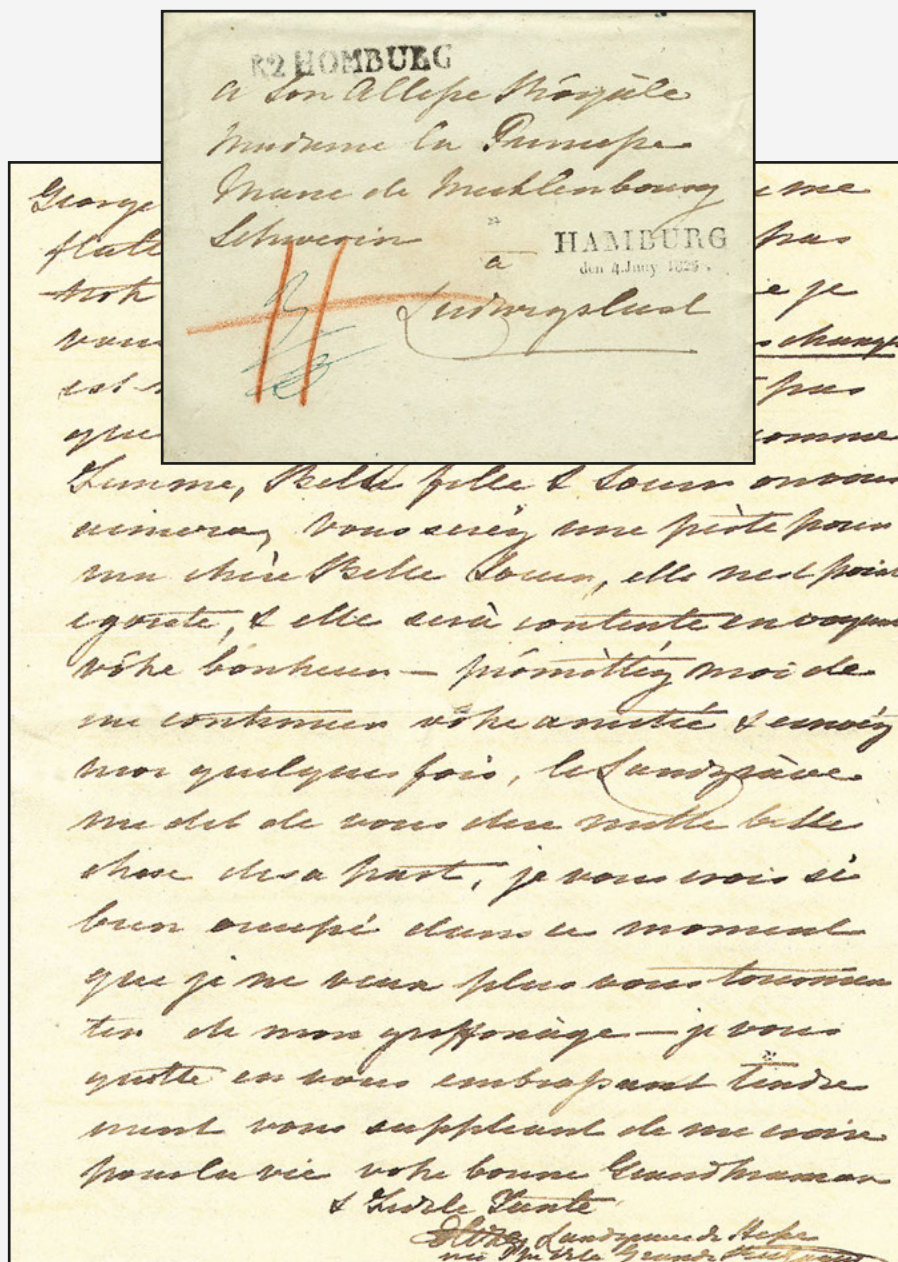 R2 HOMBURG
a Son Altesse Rôyàle
Madame la Princesse
Marie de Mecklenbourg
Schwerin
27
à
HAMBURG
den 4. Juny 1825.
Ludwigslust
George me
flatt pas
je
vous change
est pas
que comme
Femme, Belle fille & Soeur on vous
aimera, vous seréz une pèrte pour
ma chère Belle Soeur, elle nest point
egoiste, & elle serà contente en voyant
vôtre bonheur — prômèttéz moi de
me continuer vôtre amitié &
moi quelques fois, le Landgràve
me dit de vous dire mille belle
chose de sa part, je vous crois si
bien occupé dans ce moment
que je ne veux plus vous tourmen
ter de mon griffonàge — je vous
quitte en vous embrassant tendre
ment vous suppliant de me croire
pour la vie votre bonne Grandmaman
& Tante
Landgrave de Hesse